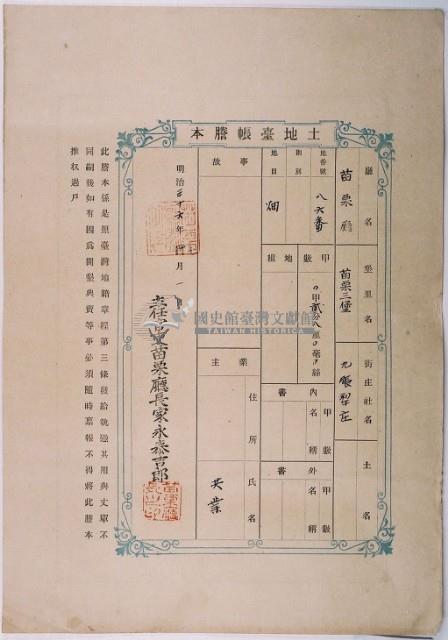 土地臺帳謄本
廳名
苗栗廳
堡里名
苗栗三堡
街庄社名
九張犁庄
土名
地番號
八六番
則別
地目
畑
甲數
〇甲貳分八厘〇毫〇絲
地租
內書
甲數
名稱
外書
甲數
名稱
事故
業主
住所
氏名
共業
明治三十六年四月一日
主任官職苗栗廳長家永泰吉郎
此謄本係是照臺灣地籍章程第三條發給執過其用與丈單不
同嗣後如有因為開墾典賣等事必須隨時稟報不得將此謄本
推收過戶
國史館臺灣文獻館
TAIWAN HISTORICA